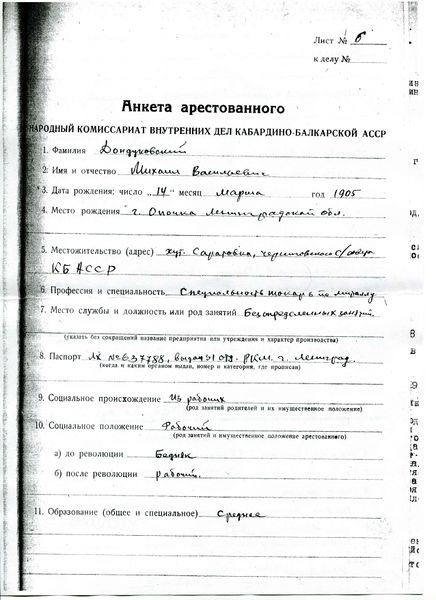 Лист № 6
к делу №
Анкета арестованного
НАРОДНЫЙ КОМИССАРИАТ ВНУТРЕННИХ ДЕЛ КАБАРДИНО-БАЛКАРСКОЙ АССР
1. Фамилия Дондуковский
2. Имя и отчество Михаил Васильевич
3. Дата рождения: число "14" месяц Марта год 1905
4. Место рождения г. Опочка Ленинградской обл.
5. Местожительство (адрес) хут. Саратовка,
КБАССР
6. Профессия и специальность Специальность токарь по металлу
7. Место службы и должность или род занятий Без определенных занятий
(указать без сокращений название предприятия или учреждения и характер производства)
8. Паспорт № 637788, РКМ. г. Ленинград.
(когда и каким органом выдан, номер и категория, где прописан)
9. Социальное происхождение Из рабочих
(род занятий родителей и их имущественное положение)
10. Социальное положение Рабочий
(род занятий и имущественное положение арестованного)
а) до революции Бедняк
б) после революции рабочий.
11. Образование (общее и специальное) Среднее